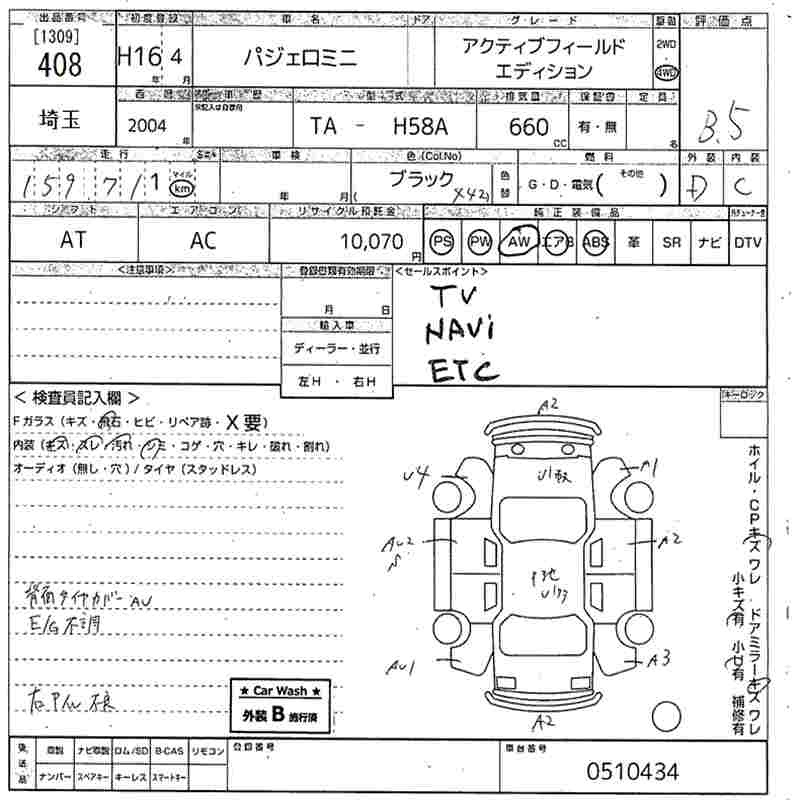 出品番号 初度登録 車名 ドア グレード 駆動 評価点
[1309]
408 H16 年 4 月 パジェロミニ アクティブフィールド エディション 2WD 4WD
西暦 車歴 型式 排気量 保証書 定員
埼玉 2004 年 TA - H58A 660 CC 有・無 名 3.5
走行 車検 色(Col.No) 燃料 外装 内装
159,711 マイル km 年 月 ブラック ( X42 ) 色替 G・D・電気( その他 ) D C
シフト エアコン リサイクル預託金 純正装備品
AT AC 10,070 円 PS PW AW エアB ABS 革 SR ナビ DTV
<注意事項> 登録書類有効期限 <セールスポイント>
月 日 TV
輸入車 NAVi
ディーラー・並行 ETC
左H ・ 右H
< 検査員記入欄 > キーロック
Fガラス (キズ・飛石・ヒビ・リペア跡・X要)
内装 (キズ・スレ・汚れ・シミ・コゲ・穴・キレ・破れ・割れ)
オーディオ (無し・穴) / タイヤ (スタッドレス)
A2
U4 A1
AU2 A2
AU1 A3
A2
背面タイヤカバー AU
E/G不調
★ Car Wash ★
外装 B 施行済
ホイル・CPキズ ワレ ドアミラーキズ ワレ
小キズ有 小U有 補修有
後送品 取説 ナビ取説 ロム/SD B-CAS リモコン 登録番号 車台番号
ナンバー スペアキー キーレス スマートキー 0510434